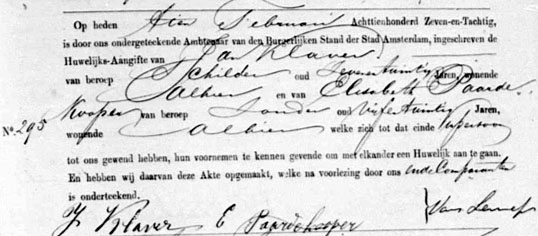 Op heden Acten Februari Achttienhonderd Zeven-en-Tachtig,
is door ons ondergeteekende Ambtenaar van den Burgerlijken Stand der Stad Amsterdam, ingeschreven de
Huwelijks-Aangifte van Jan Klaver
van beroep Schilder oud Zevenentwintig Jaren, wonende
Alhier en van Elisabeth Paarde-
No. 295 Kooper van beroep Zonder oud Vijfentwintig Jaren,
wonende Alhier welke zich tot dat einde in persoon
tot ons gewend hebben, hun voornemen te kennen gevende om met elkander een Huwelijk aan te gaan.
En hebben wij daarvan deze Akte opgemaakt, welke na voorlezing door ons en de Comparanten
is onderteekend.
J Klaver E Paardekooper Van Lennep